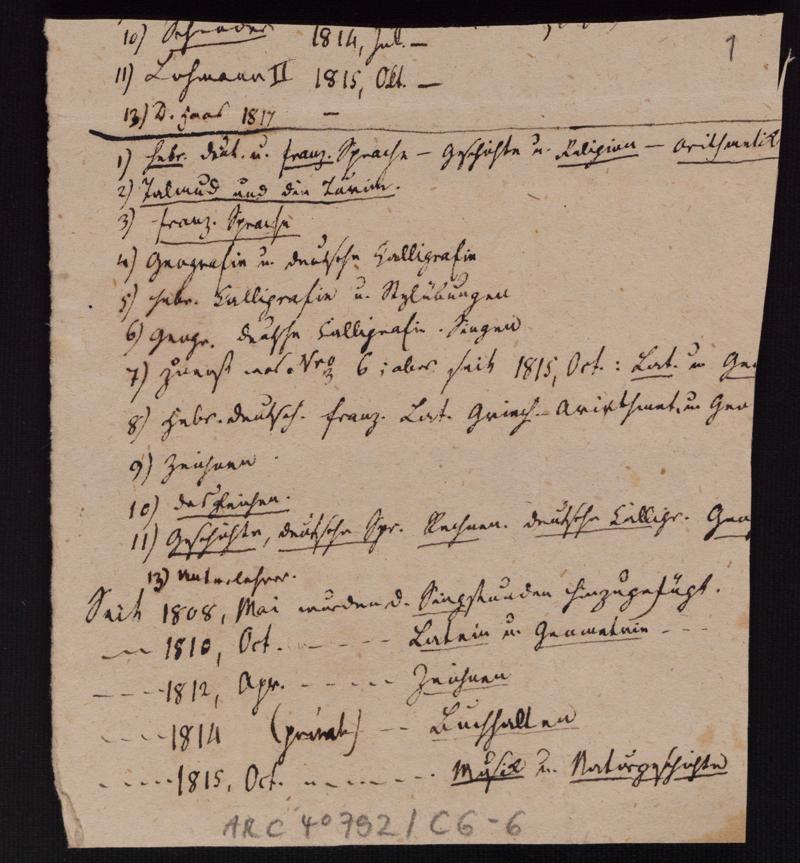 10) Schrader 1814, Jul. —
1
11) Lohmann II 1815, Okt. —
13) D. Haas 1817 —
1) hebr. deut. u. franz. Sprache – Geschichte u. Religion – Arithmetik
2) Talmud und den Turim.
3) franz. Sprache
4) Geografie u. deutsche Calligrafie
5) hebr. Calligrafie u. Stylübungen
6) Geogr. deutsche Calligrafie. Singen
7) Zuerst was Nro 6; aber seit 1815, Oct.: Lat. u Geo
8) Hebr. deutsch. franz. Lat. Griech. – Arithmet. u Geo
9) Zeichnen
10) desgleichen.
11) Geschichte, deutsche Spr. Rechnen. deutsche Calligr. Geo
13) Naturlehre.
Seit 1808, Mai wurden d. Singstunden hinzugefügt.
— 1810, Oct. - - - - Latein u Geometrie - - -
- - - 1812, Apr. - - - - Zeichnen
- - - 1814 (privat) - - Buchhalten
- - - - 1815, Oct. - - - - - Musik u. Naturgeschichte
ARC 4° 792 / C6-6